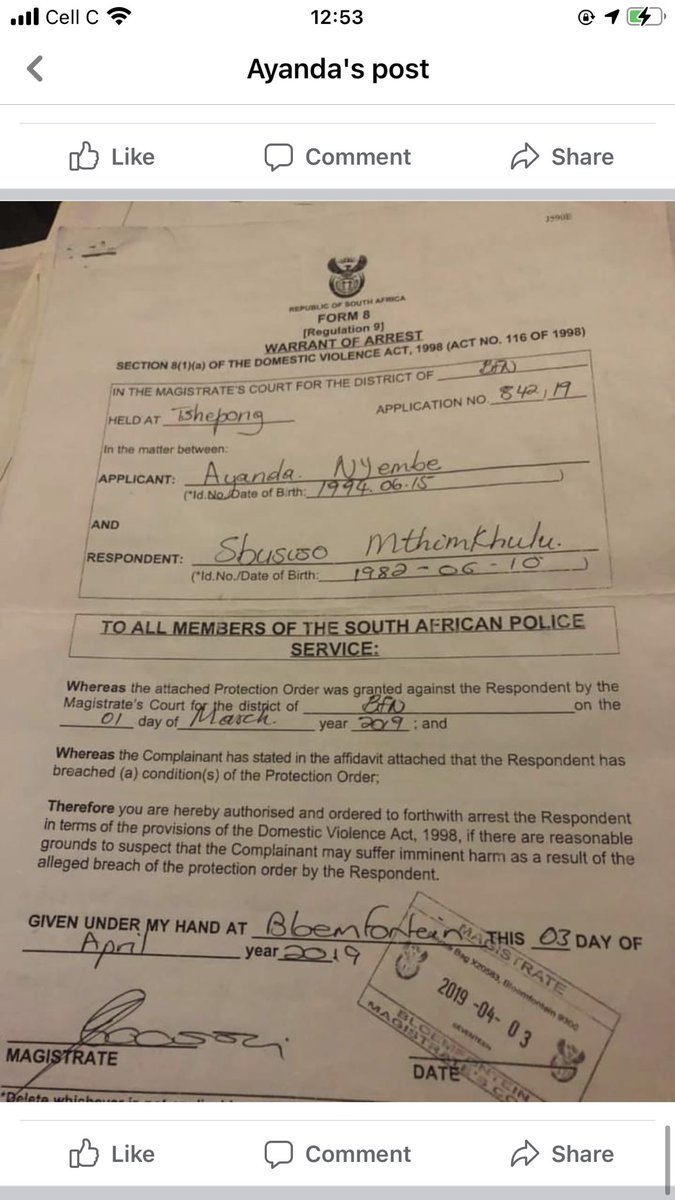 Cell C
12:53
Ayanda's post
Like Comment Share
J590E
REPUBLIC OF SOUTH AFRICA
FORM 8
[Regulation 9]
WARRANT OF ARREST
SECTION 8(1)(a) OF THE DOMESTIC VIOLENCE ACT, 1998 (ACT NO. 116 OF 1998)
IN THE MAGISTRATE'S COURT FOR THE DISTRICT OF BFN
HELD AT Tshepong APPLICATION NO. 842,19
In the matter between:
APPLICANT: Ayanda. Nyembe
(*Id.No./Date of Birth: 1994.06.15 )
AND
RESPONDENT: Sbususo Mthimkhulu.
(*Id.No./Date of Birth: 1982-06-10 )
TO ALL MEMBERS OF THE SOUTH AFRICAN POLICE
SERVICE:
Whereas the attached Protection Order was granted against the Respondent by the
Magistrate's Court for the district of BFN on the
01 day of March. year 2019 ; and
Whereas the Complainant has stated in the affidavit attached that the Respondent has
breached (a) condition(s) of the Protection Order;
Therefore you are hereby authorised and ordered to forthwith arrest the Respondent
in terms of the provisions of the Domestic Violence Act, 1998, if there are reasonable
grounds to suspect that the Complainant may suffer imminent harm as a result of the
alleged breach of the protection order by the Respondent.
GIVEN UNDER MY HAND AT Bloemfontein THIS 03 DAY OF
April year 2019
MAGISTRATE
Bag X20583, Bloemfontein 9300
2019 -04- 03
SEVENTEEN
BLOEMFONTEIN
MAGISTRATE'S CO
MAGISTRATE
DATE
*Delete whichever is not
Like Comment Share